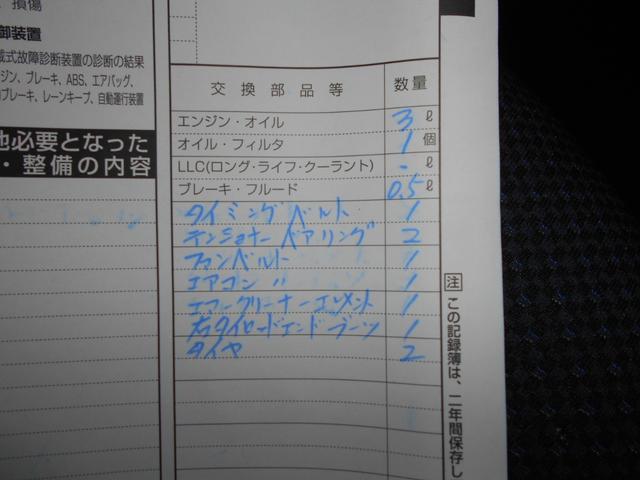 損傷
御装置
載式故障診断装置の診断の結果
ジン、ブレーキ、ABS、エアバッグ、
ブレーキ、レーンキープ、自動運行装置
他必要となった
・整備の内容
交換部品等 数量
エンジン・オイル 3 ℓ
オイル・フィルタ 1 個
LLC(ロング・ライフ・クーラント) - ℓ
ブレーキ・フルード 0.5 ℓ
タイミングベルト 1
テンショナーベアリング 2
ファンベルト 1
エアコン 〃 1
エアークリーナーエレメント 1
右タイロッドエンドブーツ 1
タイヤ 2
注 この記録簿は、二年間保存し